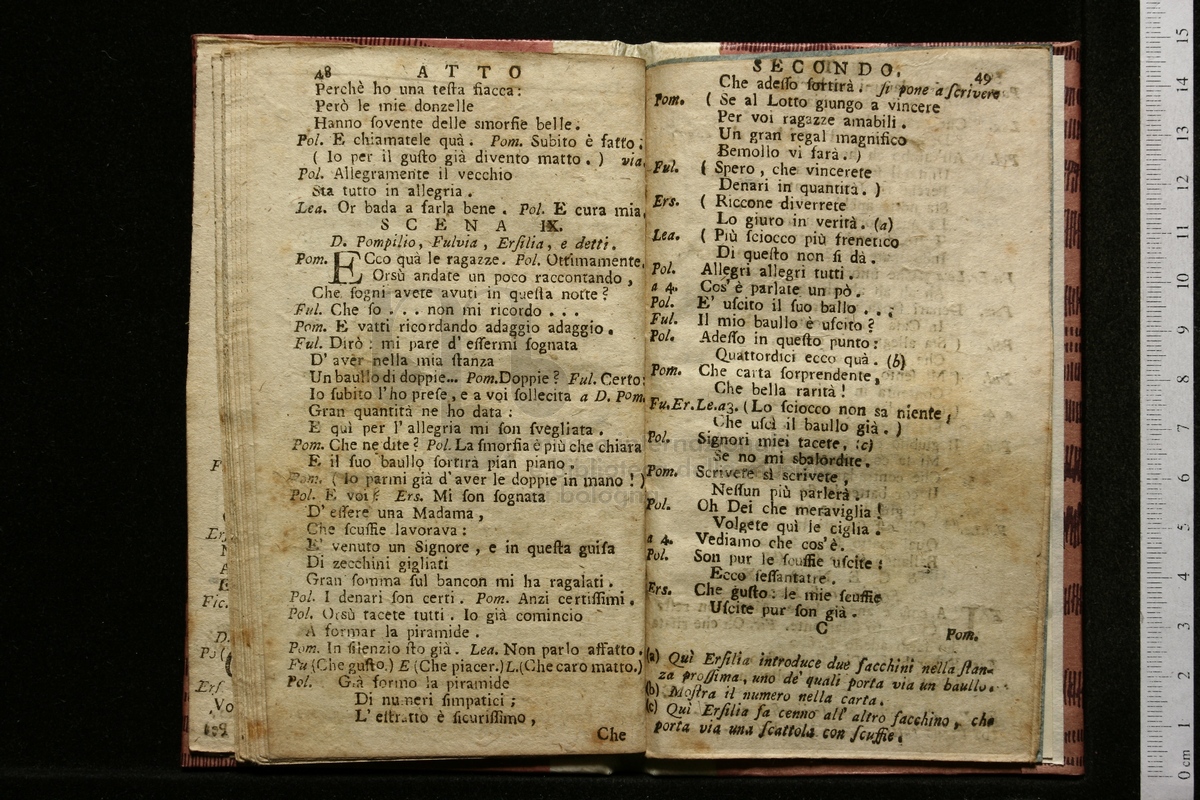 48 ATTO
Perchè ho una teſta fiacca:
Però le mie donzelle
Hanno ſovente delle smorfie belle.
Pol. E chiamatele quà. Pom. Subito è fatto;
( Io per il guſto già divento matto. ) via.
Pol. Allegramente il vecchio
Sta tutto in allegria.
Lea. Or bada a farla bene. Pol. E cura mia.
SCENA IX.
D. Pompilio, Fulvia, Erſilia, e detti.
Pom. ECco quà le ragazze. Pol. Ottimamente,
Orsù andate un poco raccontando,
Che ſogni avete avuti in queſta notte?
Ful. Che ſo . . . non mi ricordo . . .
Pom. E vatti ricordando adaggio adaggio.
Ful. Dirò: mi pare d' eſſermi ſognata
D' aver nella mia ſtanza
Un baullo di doppie... Pom. Doppie? Ful. Certo:
Io ſubito l'ho preſe, e a voi ſollecita a D. Pom.
Gran quantità ne ho data:
E quì per l' allegria mi ſon ſvegliata.
Pom. Che ne dite? Pol. La ſmorfia è più che chiara
E il ſuo baullo ſortirà pian piano.
Pom. ( Io parmi già d'aver le doppie in mano! )
Pol. E voi? Ers. Mi ſon ſognata
D' eſſere una Madama,
Che ſcuffie lavorava:
E' venuto un Signore, e in queſta guiſa
Di zecchini gigliati
Gran ſomma ſul bancon mi ha ragalati.
Pol. I denari ſon certi. Pom. Anzi certiſſimi.
Pol. Orsù tacete tutti. Io già comincio
A formar la piramide.
Pom. In ſilenzio ſto già. Lea. Non parlo affatto.
Fu (Che guſto.) E (Che piacer.) L. (Che caro matto.)
Pol. Già formo la piramide
Di numeri ſimpatici;
L' eſtratto è ſicuriſſimo,
Che
SECONDO. 49
Che adeſſo ſortirà. ſi pone a ſcrivere
Pom. ( Se al Lotto giungo a vincere
Per voi ragazze amabili.
Un gran regal magnifico
Bemollo vi farà. )
Ful. ( Spero, che vincerete
Denari in quantità. )
Ers. ( Riccone diverrete
Lo giuro in verità. (a)
Lea. ( Più ſciocco più frenetico
Di queſto non ſi dà.
Pol. Allegri allegri tutti.
a 4. Cos' è parlate un pò.
Pol. E' uſcito il ſuo ballo . . .
Ful. Il mio baullo è uſcito?
Pol. Adeſſo in queſto punto:
Quattordici ecco quà. (b)
Pom. Che carta ſorprendente,
Che bella rarità!
Fu.Er.Le.a3. (Lo ſciocco non sa niente,
Che uſcì il baullo già. )
Pol. Signori miei tacete, (c)
Se no mi sbalordite.
Pom. Scrivete sì scrivete,
Neſſun più parlerà.
Pol. Oh Dei che meraviglia!
Volgete quì le ciglia.
a 4. Vediamo che cos'è.
Pol. Son pur le ſcuffie uſcite:
Ecco ſeſſantatre.
Ers. Che guſto: le mie ſcuffie
Uſcite pur ſon già.
C Pom.
(a) Quì Erſilia introduce due facchini nella ſtan-
za proſſima, uno de' quali porta via un baullo.
(b) Moſtra il numero nella carta.
(c) Quì Erſilia fa cenno all' altro facchino, che
porta via una ſcattola con ſcuffie.